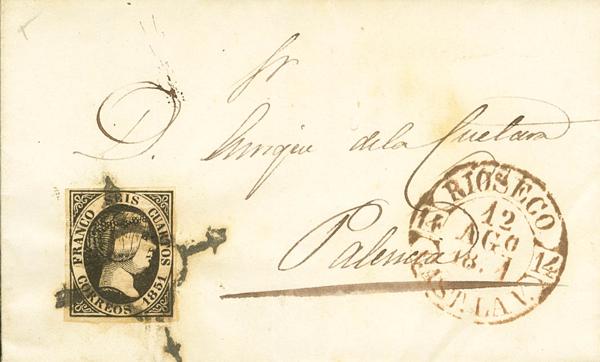 Sr
D. Enrique de la Cuetara
Palencia
FRANCO SEIS CUARTOS
CORREOS 1851
RIOSECO
12
AGO
14 14
CAST. LA V.